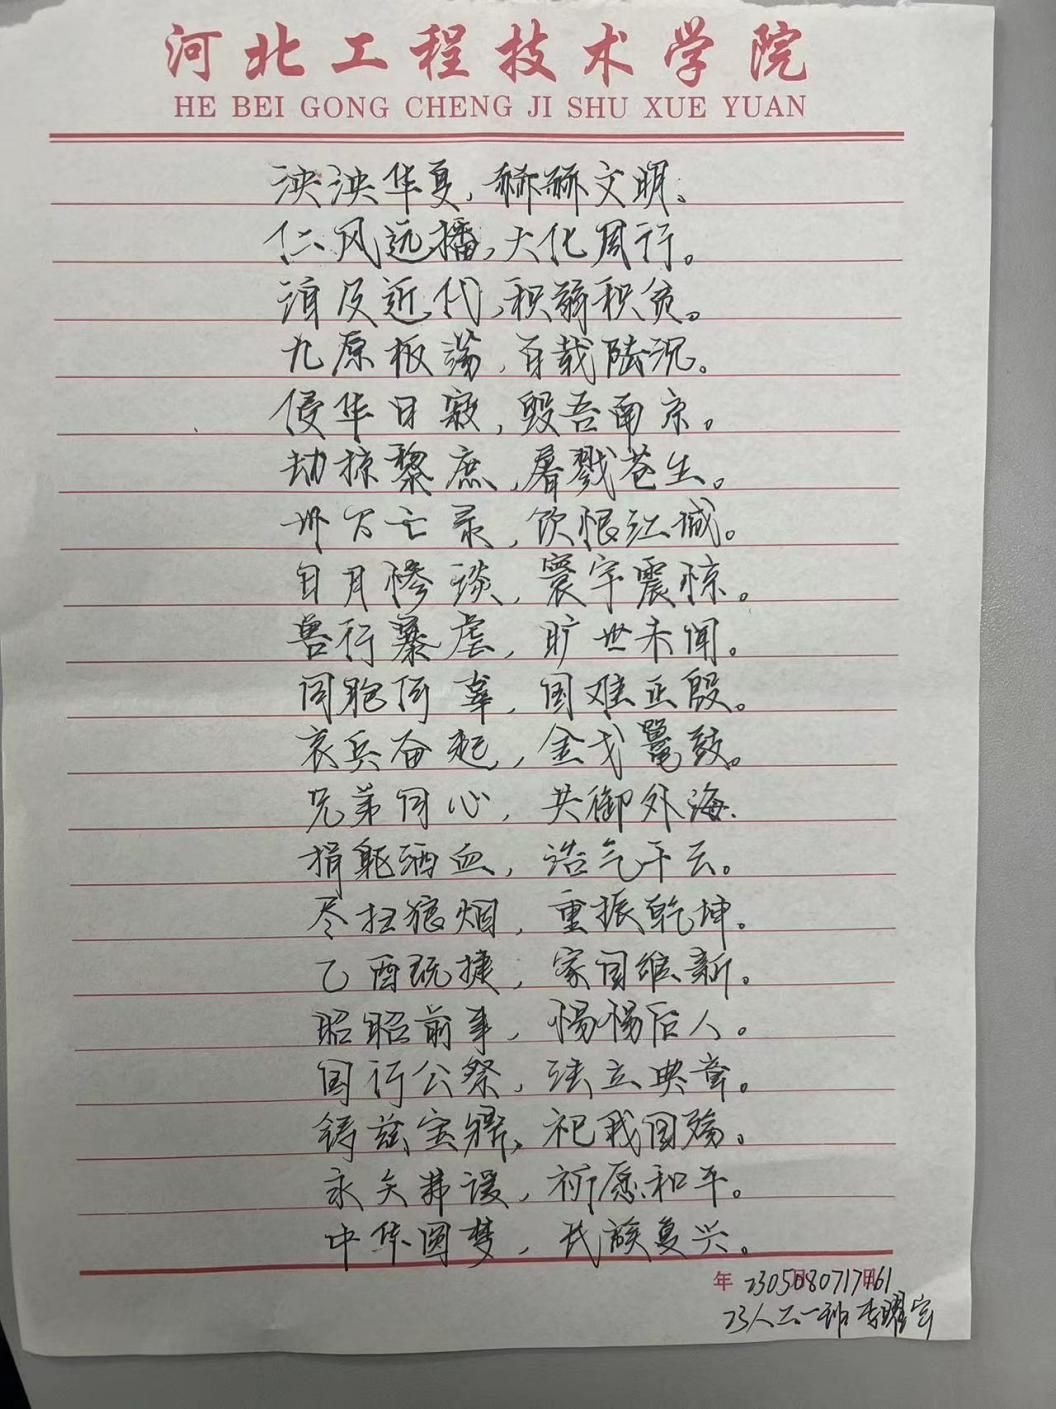 河北工程技术学院
HE BEI GONG CHENG JI SHU XUE YUAN
泱泱华夏，赫赫文明、
仁风远播，大化周行。
洎及近代，积弱积贫。
九原板荡，百载陆沉。
侵华日寇，毁吾南京。
劫掠黎庶，屠戮苍生。
卅万亡灵，饮恨江城。
日月惨谈，寰宇震惊。
兽行暴虐，旷世未闻。
同胞何辜，国难正殷。
哀兵奋起，金戈鼍鼓。
兄弟同心，共御外海.
捐躯洒血，浩气干云。
尽扫狼烟，重振乾坤。
乙酉既捷，家国维新。
昭昭前事，惕惕后人。
国行公祭，法立典章。
铸兹宝鼎、祀我国殇。
永矢弗谖，祈愿和平。
中华圆梦，民族复兴。
年 月 日 2305080717461
23人工一班 李曜宇